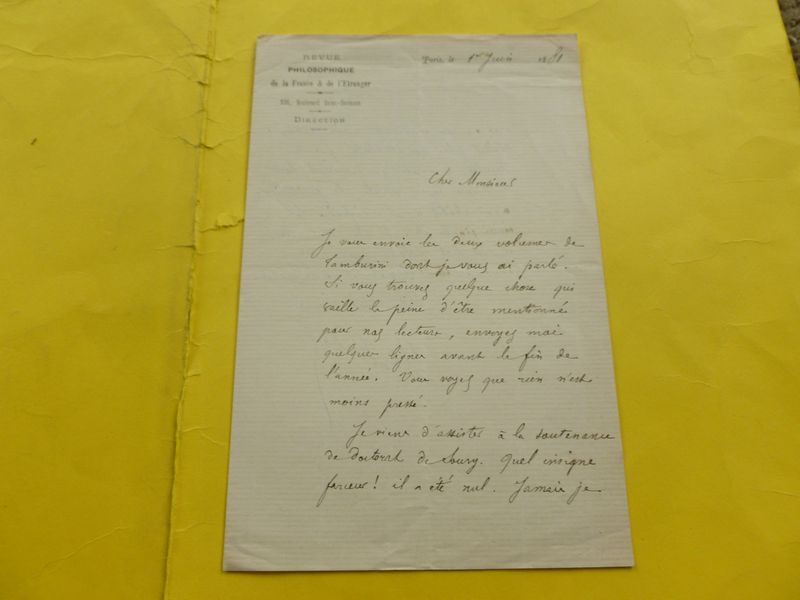 REVUE
PHILOSOPHIQUE
de la France & de l'Etranger
Boulevard Saint-Germain
DIRECTION
Paris, le 1er Juin 1881
Cher Monsieur
Je vous envoie les deux volumes de
Tamburini dont je vous ai parlé.
Si vous trouvez quelque chose qui
vaille la peine d'être mentionné
pour nos lecteurs, envoyez moi
quelques lignes avant la fin de
l'année. Vous voyez que rien n'est
moins pressé.
Je viens d'assister à la soutenance
de doctorat de. Quel insigne
farceur! il a été nul. Jamais je